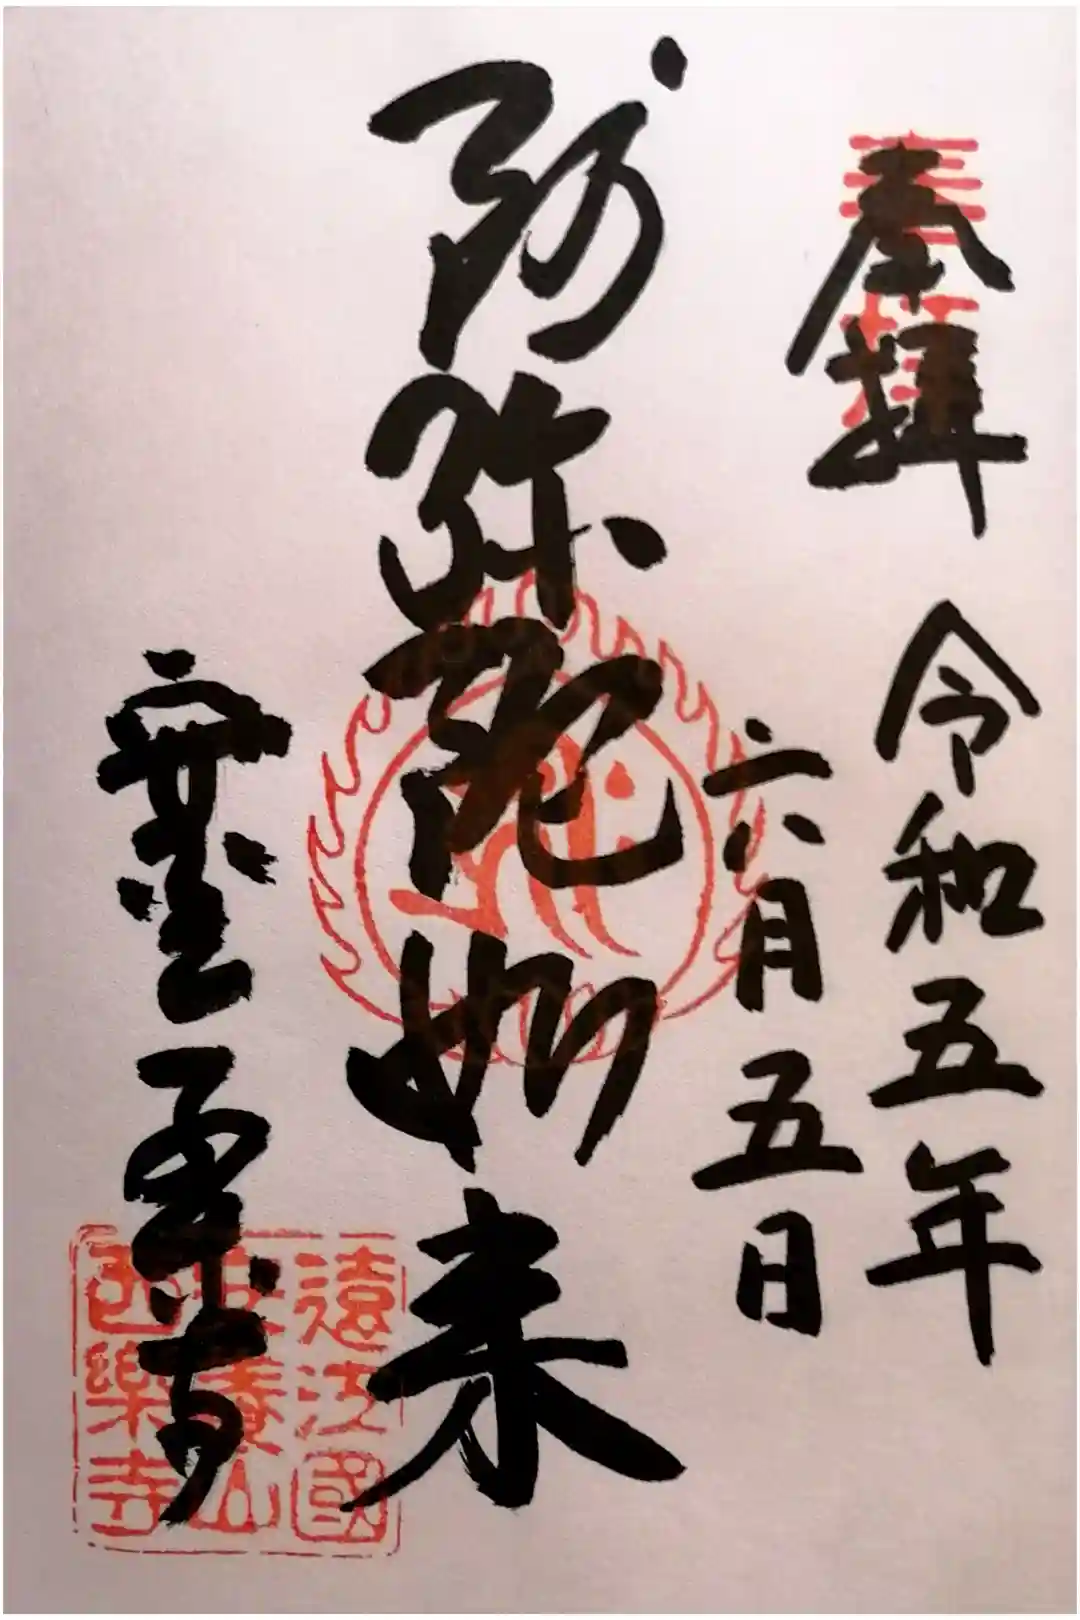 奉拝
令和五年
六月五日
阿弥陀如来
寺
遠江國
安養山
西樂寺